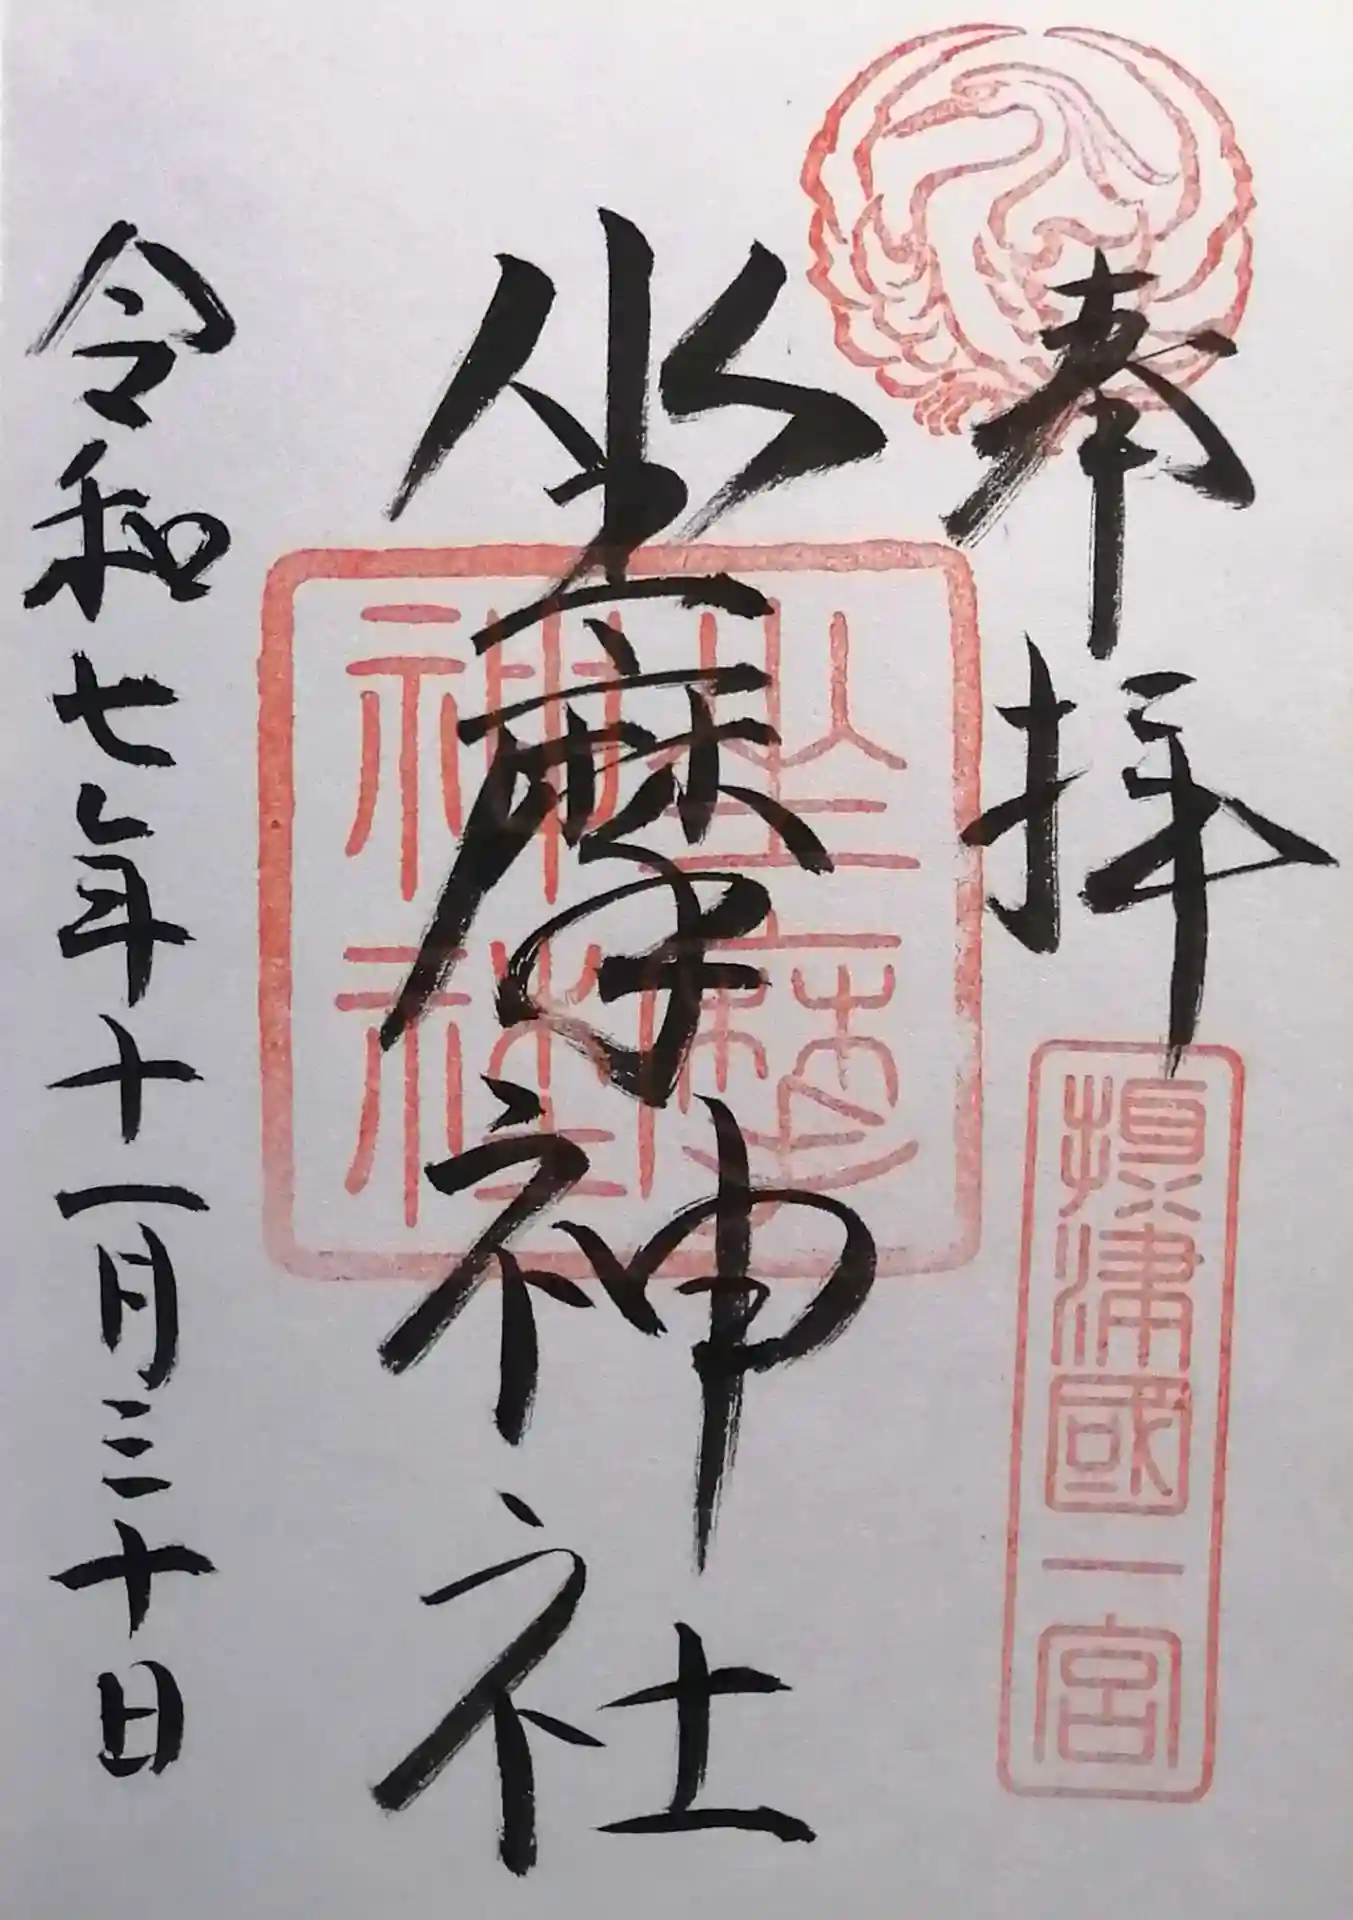 奉拝
攝津國一宮
坐摩神社
坐摩神社
令和七年十一月三十日